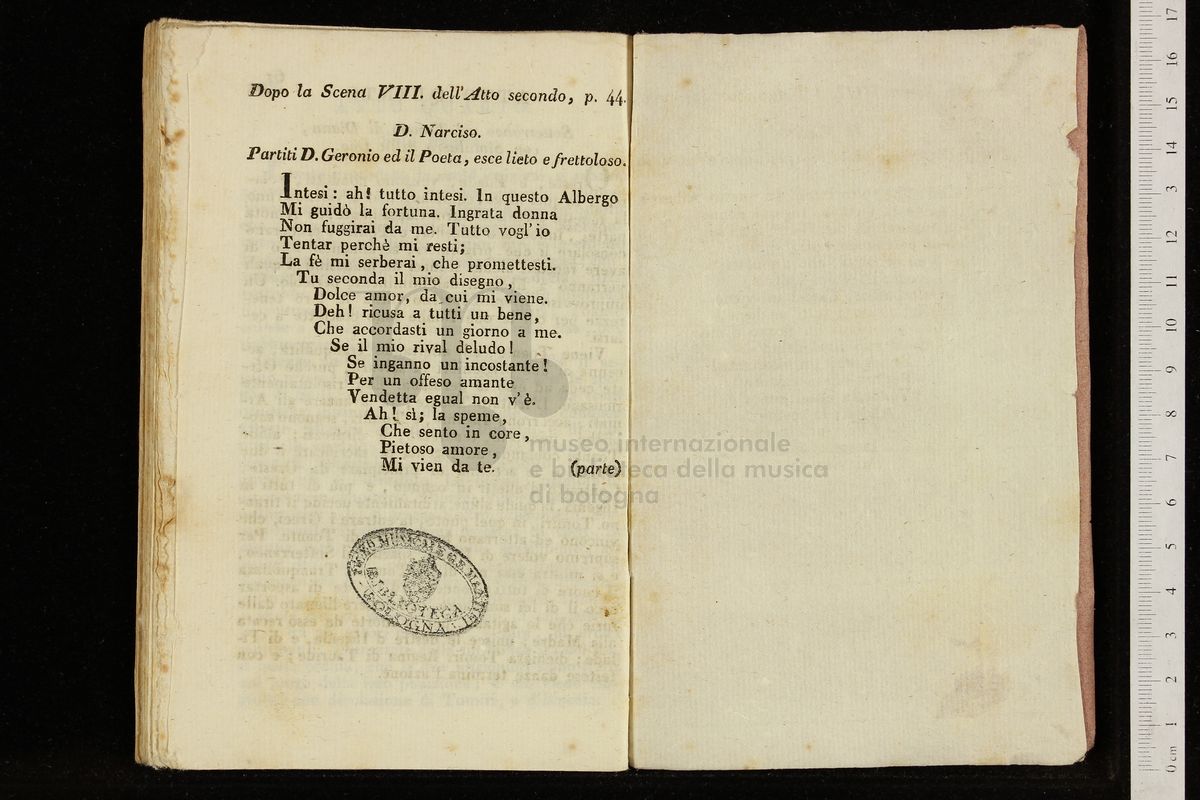 Dopo la Scena VIII. dell'Atto secondo, p. 44.
D. Narciso.
Partiti D. Geronio ed il Poeta, esce lieto e frettoloso.
Intesi: ah! tutto intesi. In questo Albergo
Mi guidò la fortuna. Ingrata donna
Non fuggirai da me. Tutto vogl'io
Tentar perchè mi resti;
La fè mi serberai, che promettesti.
Tu seconda il mio disegno,
Dolce amor, da cui mi viene.
Deh! ricusa a tutti un bene,
Che accordasti un giorno a me.
Se il mio rival deludo!
Se inganno un incostante!
Per un offeso amante
Vendetta egual non v'è.
Ah! sì; la speme,
Che sento in core,
Pietoso amore,
Mi vien da te. (parte)
museo internazionale
e biblioteca della musica
di bologna
LICEO MUSICALE G.B. MARTINI
BIBLIOTECA
BOLOGNA
0 cm 1 2 3 4 5 6 7 8 9 10 11 12 13 14 15 16 17